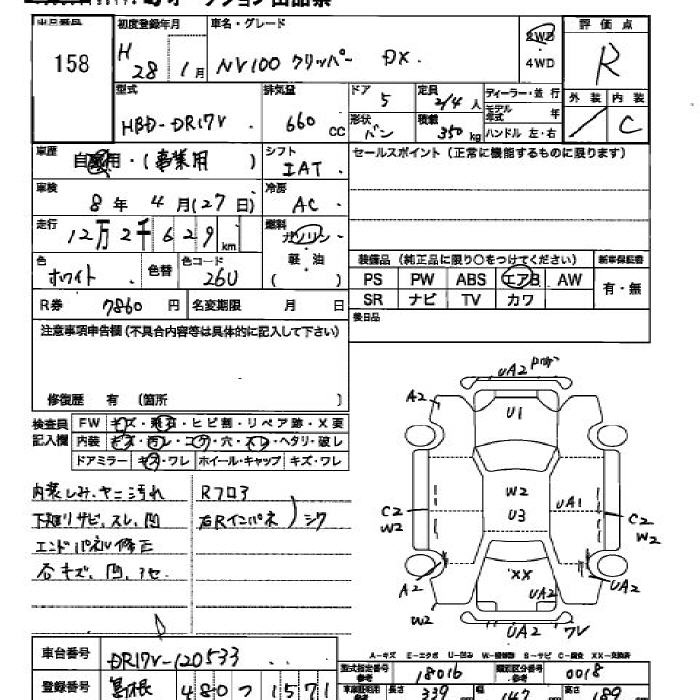 オークション出品票
出品番号 初度登録年月 車名・グレード 2WD 評価点
158 H 28 1月 NV100 クリッパー DX 4WD R
型式 排気量 ドア 5 定員 2/4人 ディーラー・並行 外装 内装
HBD-DR17V 660 CC 形状 バン 積載 350kg モデル年式 年 C
ハンドル 左・右
車歴 自家用・(事業用) シフト セールスポイント(正常に機能するものに限ります)
IAT
車検 8年 4月(27日) 冷房 AC
走行 12万2千629km 燃料 ガソリン
色 ホワイト 色替 色コード 26U 軽油 ( )
装備品(純正品に限り○をつけてください) 新車保証書
PS PW ABS エアB AW 有・無
SR ナビ TV カワ
R券 7860円 名変期限 月 日 後日品
注意事項申告欄(不具合内容等は具体的に記入して下さい)
修復歴 有(箇所 )
検査員記入欄 FW キズ・飛石・ヒビ割・リペア跡・X要
内装 キズ・汚レ・コゲ・穴・スレ・ヘタリ・破レ
ドアミラー キズ・ワレ ホイール・キャップ キズ・ワレ
内装しみ、ヤニ汚れ Rフロア
下廻リサビ、スレ、凹 右Rインパネ シワ
エンドパネル修正
UA2
A2 U1
W2
C2 U3 UA1 C2
W2 W2
A2 XX UA2 UA2
W2 UA2 7V
A-キズ E-エクボ U-凹み W-補修跡 S-サビ C-腐食 XX-交換済
車台番号 DR17V-120533
型式指定番号 18016 類別区分番号 0018
登録番号 480 つ 1571
長さ 339 幅 147 高さ 189